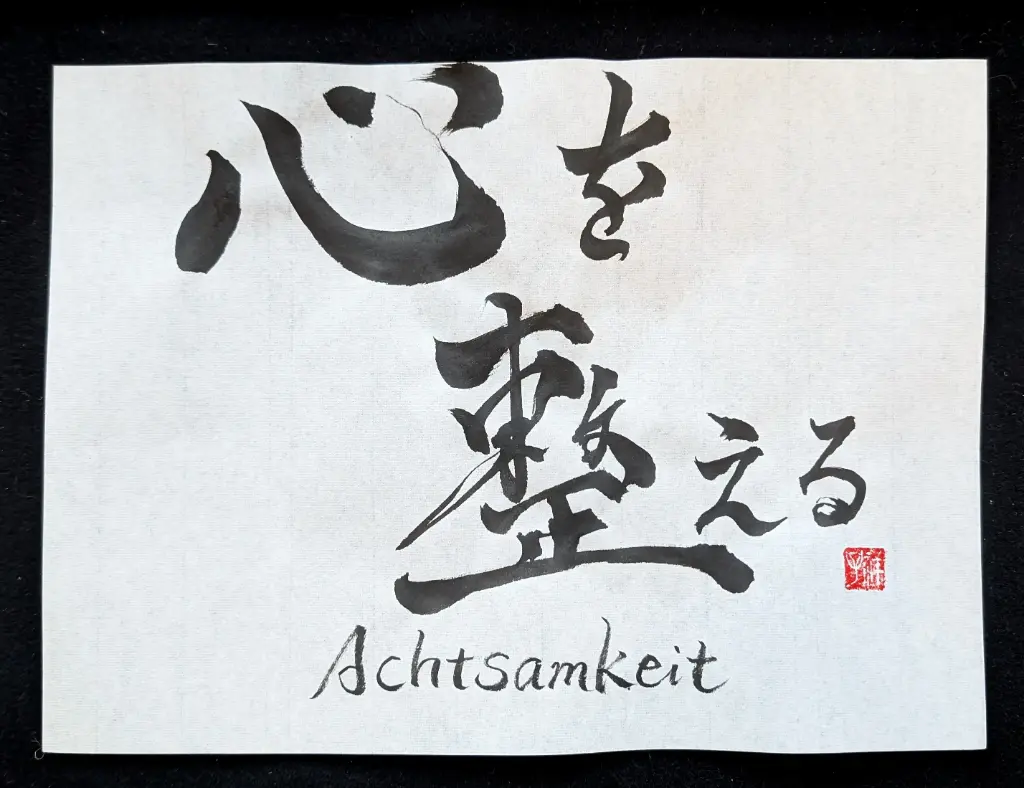 心を
整える
Achtsamkeit